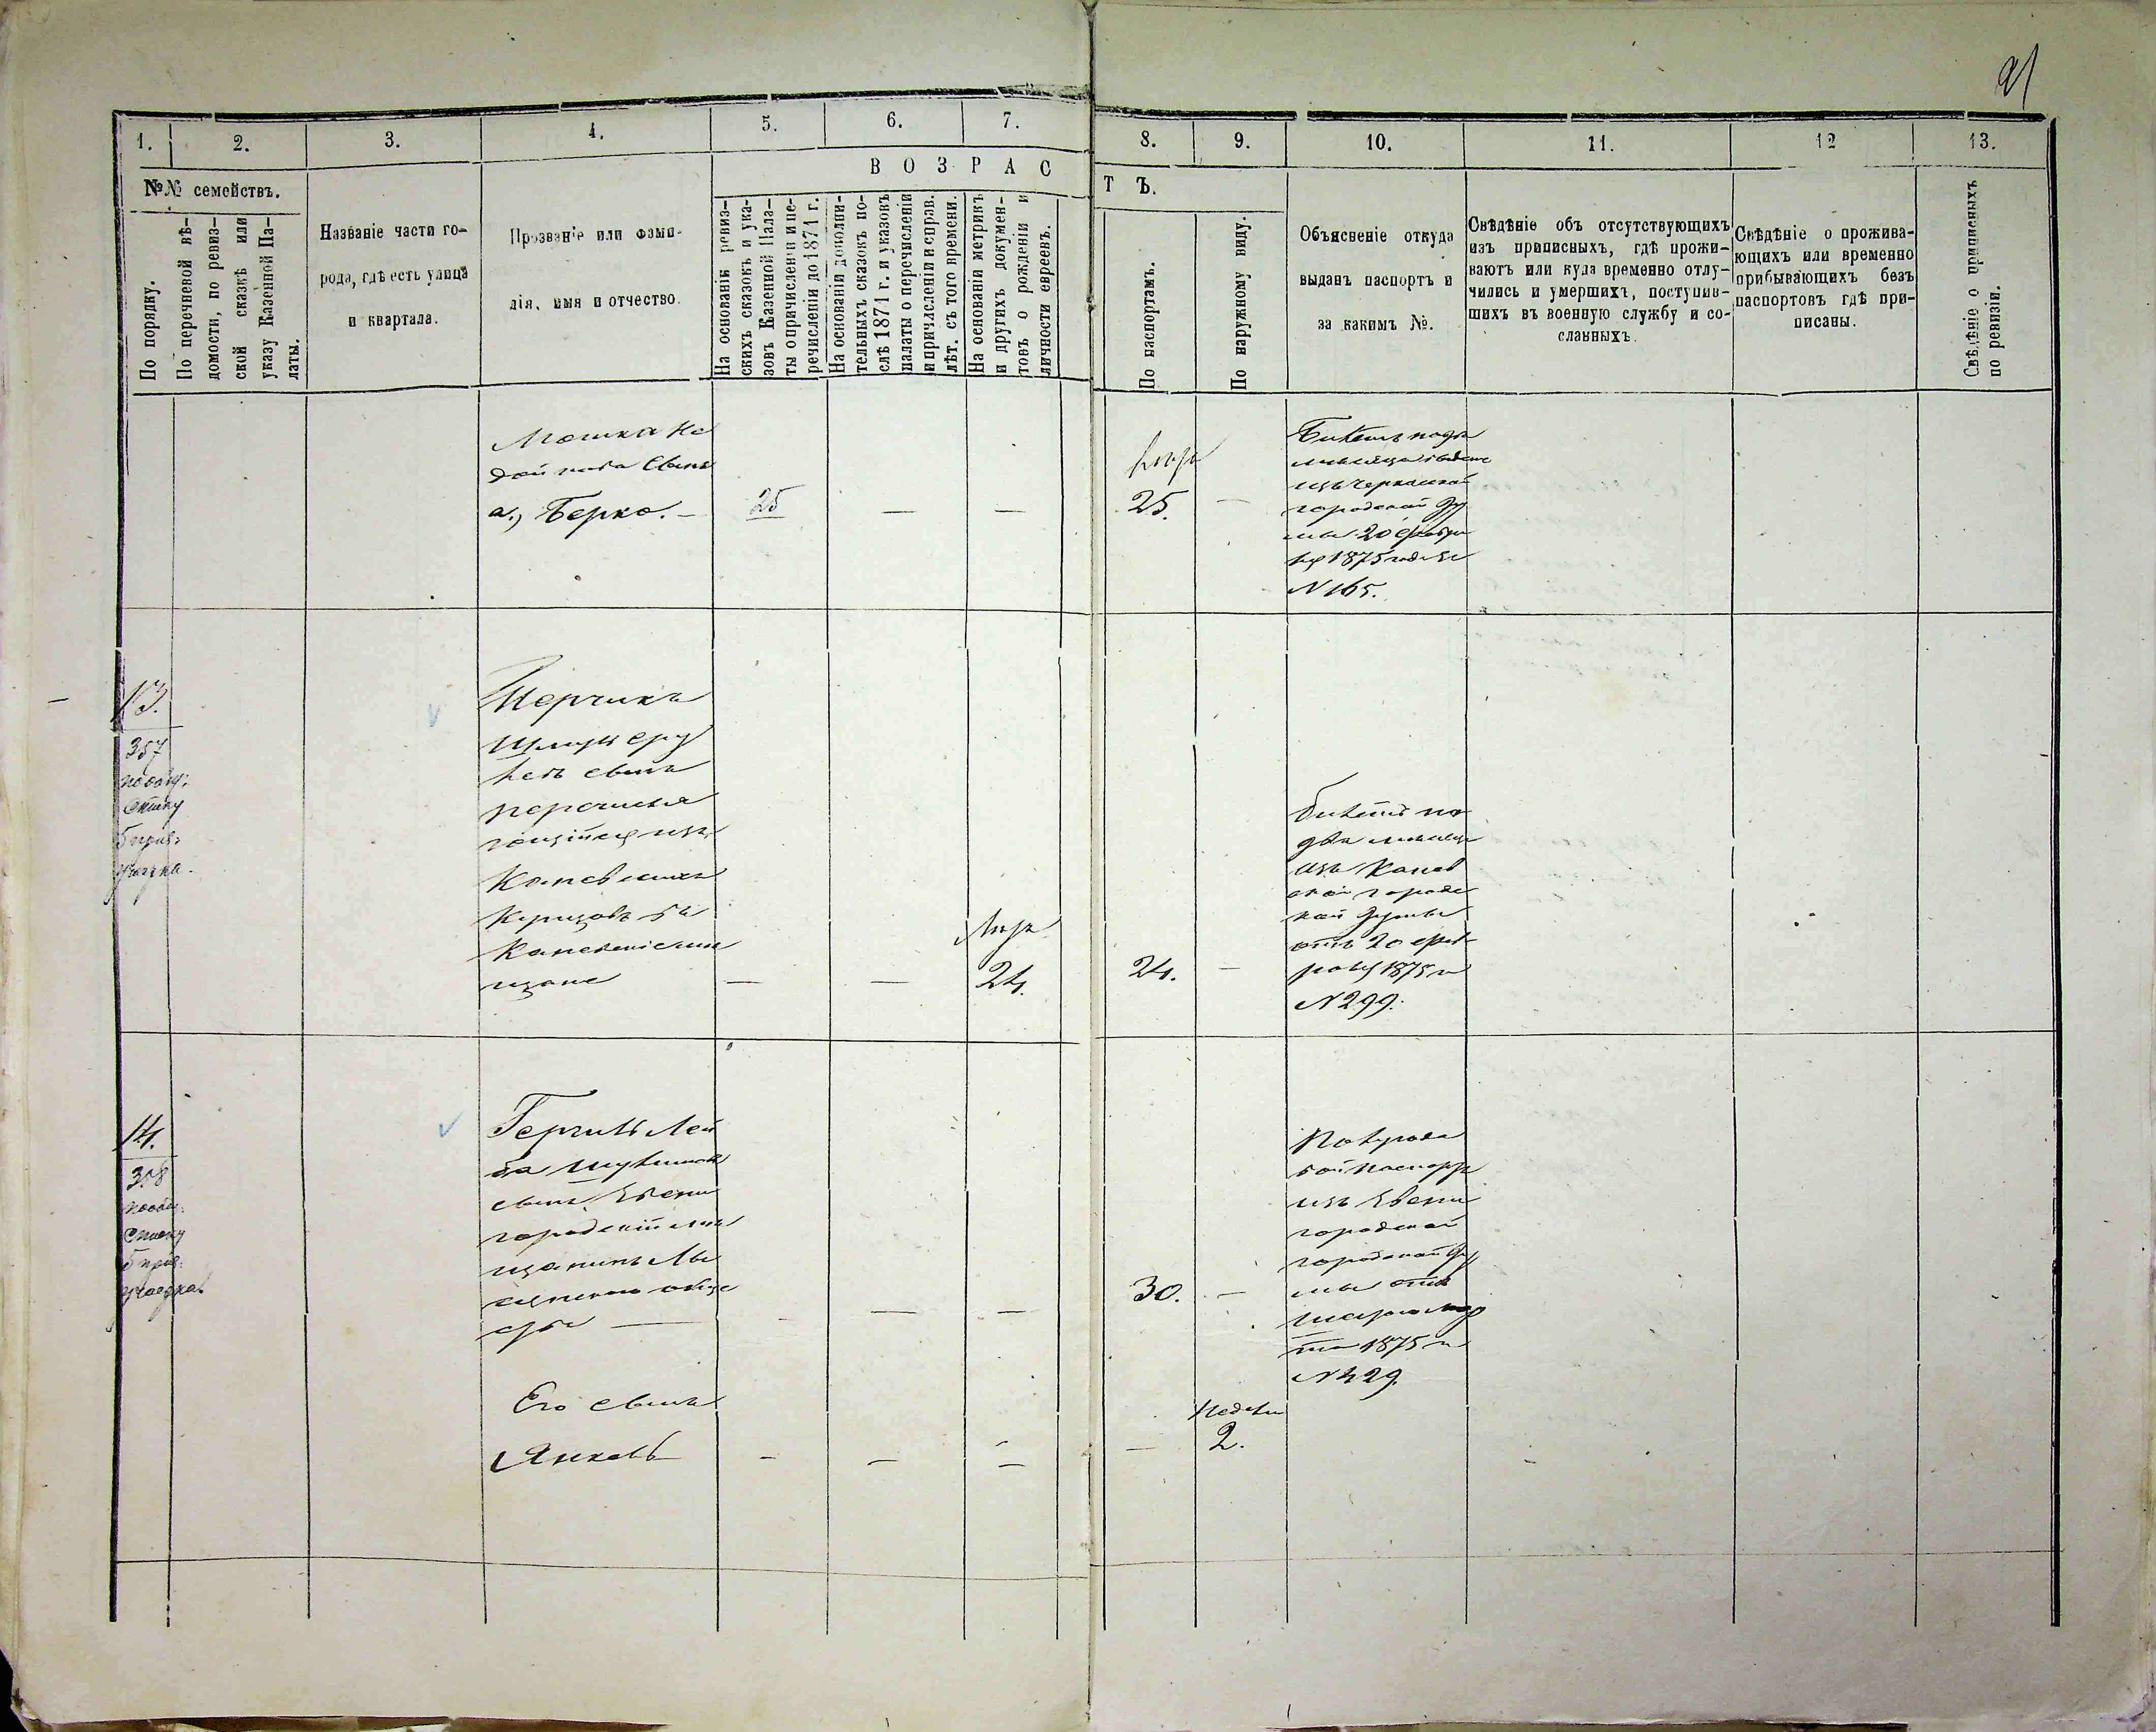 21
1.
2.
3.
4.
5.
6.
7.
8.
9.
10.
11.
12
13.
№№ семействъ.
По порядку.
По перечневой вѣ-
домости, по ревиз-
ской сказкѣ или
указу Казенной Па-
латы.
Названіе части го-
рода, гдѣ есть улица
и квартала.
Прозваніе или фами-
лія, имя и отчество.
ВОЗРАС
ТЪ.
На основаніи ревиз-
скихъ сказокъ и ука-
зовъ Казенной Пала-
ты о причисленіи и пе-
речисленіи до 1871 г.
На основаніи дополни-
тельныхъ сказокъ по-
слѣ 1871 г. и указовъ
палаты о перечисленіи
и причисленіи и справ.
лѣт. съ того времени.
На основаніи метрикъ
и другихъ докумен-
товъ о рожденіи и
личности евреевъ.
По паспортамъ.
По наружному виду.
Объясненіе откуда
выданъ паспортъ и
за какимъ №.
Свѣдѣніе объ отсутствующихъ
изъ приписныхъ, гдѣ прожи-
ваютъ или куда временно отлу-
чились и умершихъ, поступив-
шихъ въ военную службу и со-
сланныхъ.
Свѣдѣніе о прожива-
ющихъ или временно
прибывающихъ безъ
паспортовъ гдѣ при-
писаны.
Свѣдѣніе о приписныхъ
по ревизіи.
Мошка
сынъ
а., Берко. —
25
—
—
25.
—
Билетъ на два
мѣсяца
изъ Черкаской
городской Ду
мы 20 Февра
ля 1875 года за
N 165.
13.
357
по
списку
5 прив.
участка.
сынъ
перечисля
ющійся изъ
Каневскихъ
Купцовъ въ
Каневскіе мѣ
щане
—
—
24.
24.
—
Билетъ на
два мѣсяца
изъ Канев
ской городс
кой Думы
отъ 20 фев
раля 1875 г
N 299.
14.
358
по
списку
5 прив.
участка
Лей
ба
сынъ Звени
городскій мѣ
щанинъ Лы
сянскаго обще
ства —
—
—
30.
—
Полугодо
вой паспортъ
изъ Звени
городской
городской Ду
мы отъ
мар
та 1875 г
N 429.
Его сынъ
Янкель
—
—
—
—
Недели
2.